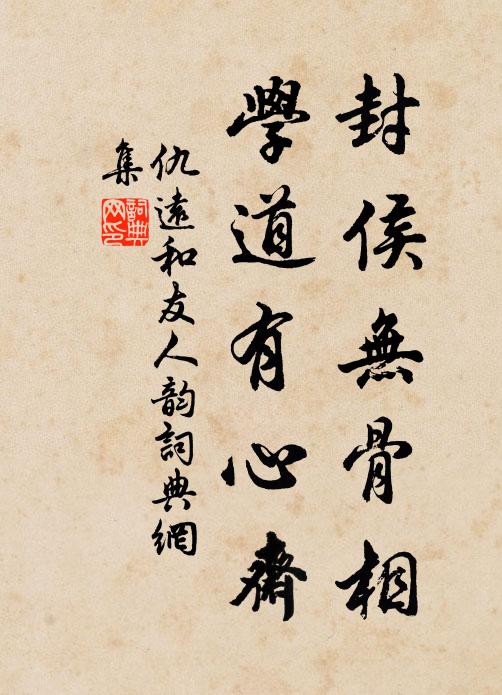 封侯無骨相
學道有心齋
仇遠和友人韵詞典網
集
詞典
网印